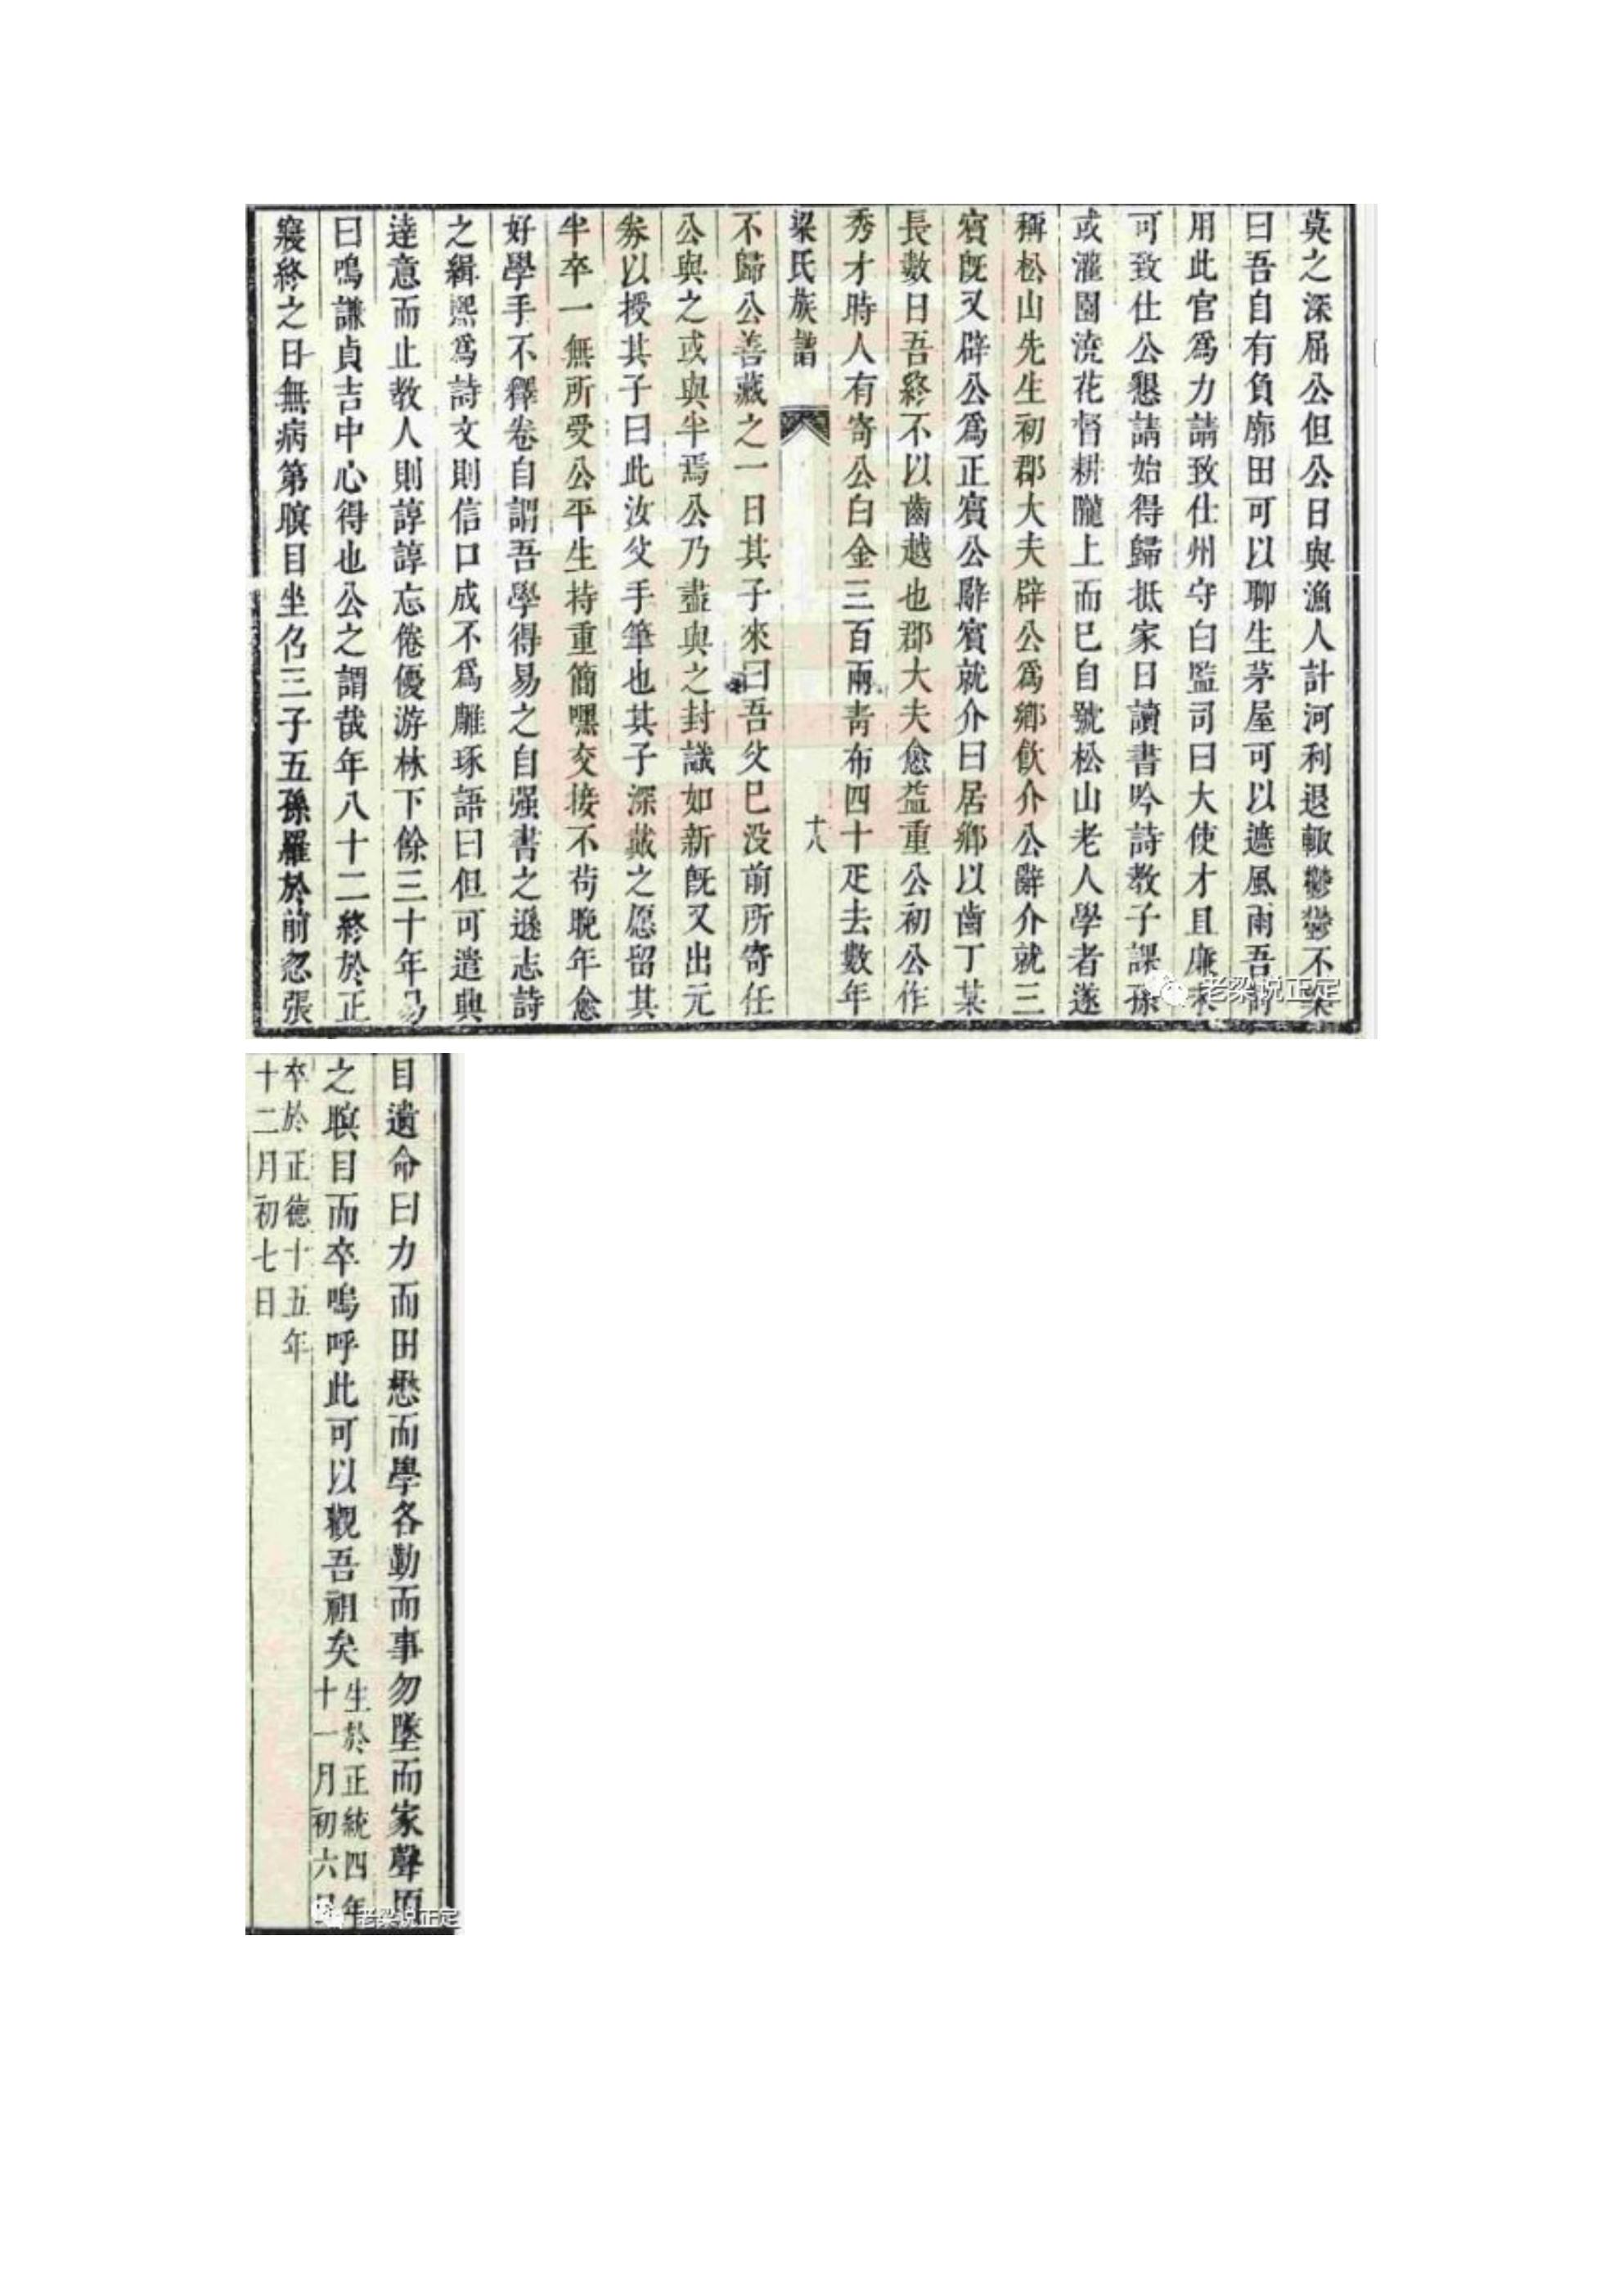 莫之深屈公但公日與漁人計河利退輙鬱鬱不樂
曰吾自有負廓田可以聊生茅屋可以遮風雨吾
用此官為力請致仕州守白監司曰大使才且廉未
可致仕公懇請始得歸抵家日讀書吟詩教子課孫
或灌園澆花督耕隴上而已自號松山老人學者遂
稱松山先生初郡大夫辟公為鄉飲介公辭介就三
賓既又辟公為正賓公辭賓就介曰居鄉以齒丁某
長數日吾終不以齒越也郡大夫愈益重公初公作
秀才時人有寄公白金三百兩青布四十疋去數年
梁氏族譜
十八
不歸公善藏之一日其子來曰吾父已没前所寄任
公與之或與半焉公乃盡與之封識如新既又出元
劵以授其子曰此汝父手筆也其子深戴之愿留其
半卒一無所受公平生持重簡嘿交接不苟晚年愈
好學手不釋卷自謂吾學得易之自强書之遜志詩
之緝熙為詩文則信口成不為雕琢語曰但可遣興
達意而止教人則諄諄忘倦優游林下餘三十年易
曰鳴謙貞吉中心得也公之謂哉年八十二終於正
寢終之日無病第瞑目坐召三子五孫羅於前忽張
老梁说正定
目遺命曰力而田懋而學各勤而事勿墜而家聲
之瞑目而卒嗚呼此可以觀吾祖矣
生於正統四年
十一月初六日
卒於正德十五年
十二月初七日
老梁说正定